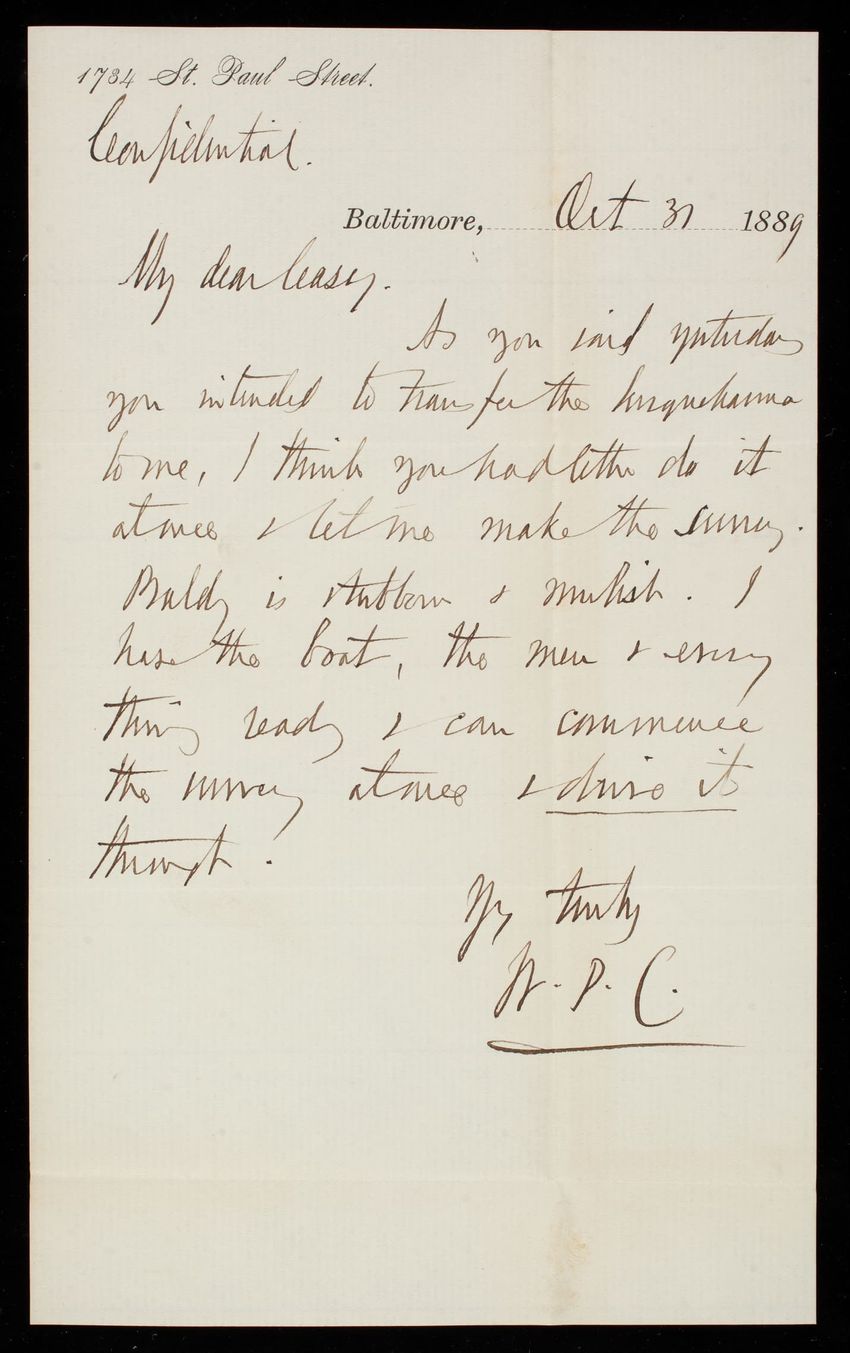 1734 St. Paul Street.
Confidential.
Baltimore, Oct 31 1889
My dear Casey.
As you said yesterday
you intended to transfer the Susquehanna
to me, I think you had better do it
at once & let me make the survey.
Baldy is stubborn & mulish. I
have the boat, the men & every
thing ready & can commence
the survey at once & drive it
through.
Yrs truly
W. P. C.